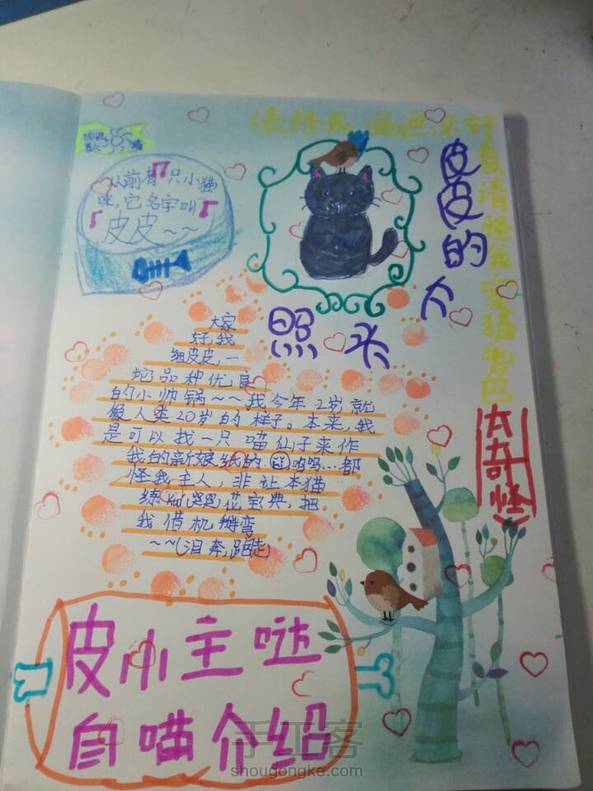 从前有一只小猫
咪,它名字叫
『皮皮~~』
皮皮的大
头照
太奇怪
大家
好,我
细皮皮,一
坨品种优良
的小帅锅~~我今年2岁就
像人类20岁的样子。本来,我
是可以找一只喵仙子来作
我的新娘纸的,呜呜...都
怪我主人,非让本猫
练
花宝典,把
我借机掰弯
~~(泪奔,跑走)
皮小主哒
自喵介绍
手工客
shougongke.com